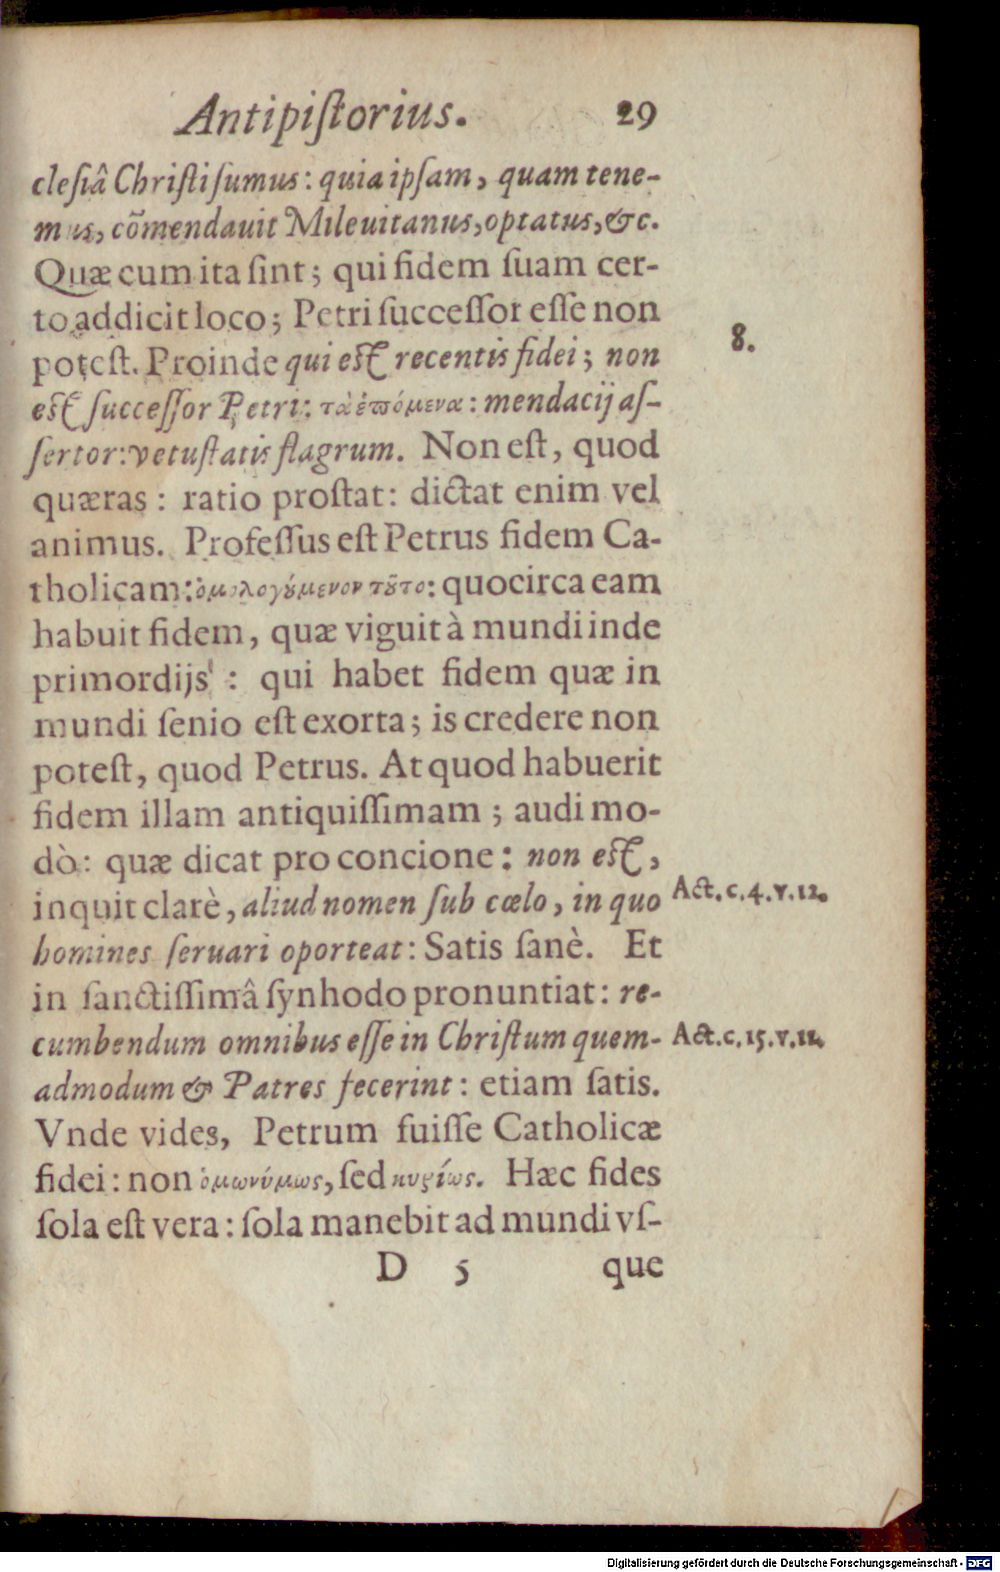 Antipiſtorius. 29
cleſiâ Chriſti ſumus: quia ipſam, quam tene-
mus, cõmendauit Mileuitanus, optatus, &c.
Quæ cum ita ſint; qui fidem ſuam cer-
to addicit loco; Petri ſucceſſor eſſe non
poteſt. Proinde qui eſt recentis fidei; non
8.
eſt ſucceſſor Petri: τὰ ἑπόμενα: mendacij aſ-
ſertor: vetuſtatis flagrum. Non eſt, quod
quæras: ratio proſtat: dictat enim vel
animus. Profeſſus eſt Petrus fidem Ca-
tholicam: ὁμολογούμενον τοῦτο: quocirca eam
habuit fidem, quæ viguit à mundi inde
primordijs: qui habet fidem quæ in
mundi ſenio eſt exorta; is credere non
poteſt, quod Petrus. At quod habuerit
fidem illam antiquiſſimam; audi mo-
dò: quæ dicat pro concione: non eſt,
inquit clarè, aliud nomen ſub cœlo, in quo
Act. c. 4. v. 12.
homines ſeruari oporteat: Satis ſanè. Et
in ſanctiſſimâ ſynhodo pronuntiat: re-
cumbendum omnibus eſſe in Chriſtum quem-
Act. c. 15. v. 11.
admodum & Patres fecerint: etiam ſatis.
Vnde vides, Petrum fuiſſe Catholicæ
fidei: non ὁμωνύμως, ſed κυρίως. Hæc fides
ſola eſt vera: ſola manebit ad mundi vſ-
D 5 que
Digitalisierung gefördert durch die Deutsche Forschungsgemeinschaft - DFG